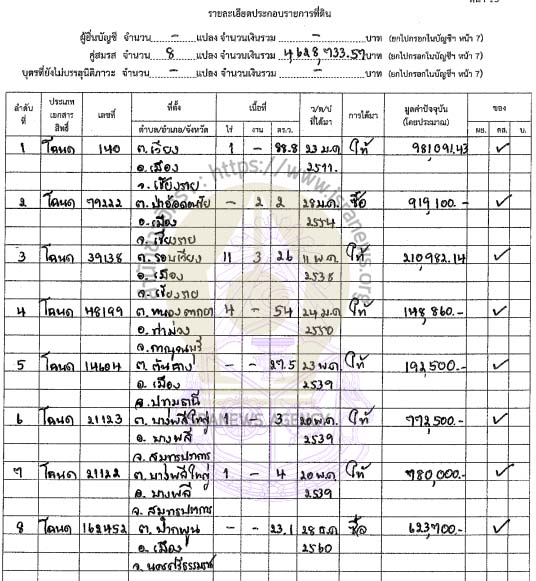 รายละเอียดประกอบรายการที่ดิน
ผู้ยื่นบัญชี จำนวน - แปลง จำนวนเงินรวม - บาท (ยกไปกรอกในบัญชีฯ หน้า 7)
คู่สมรส จำนวน 8 แปลง จำนวนเงินรวม 4,628,733.57 บาท (ยกไปกรอกในบัญชีฯ หน้า 7)
บุตรที่ยังไม่บรรลุนิติภาวะ จำนวน - แปลง จำนวนเงินรวม - บาท (ยกไปกรอกในบัญชีฯ หน้า 7)
ลำดับที่ ประเภทเอกสารสิทธิ์ เลขที่ ที่ตั้ง เนื้อที่ ว/ด/ป ที่ได้มา การได้มา มูลค่าปัจจุบัน (โดยประมาณ) ของ
ตำบล/อำเภอ/จังหวัด ไร่ งาน ตร.ว. ผย. คส. บ.
1 โฉนด 140 ต. เวียง 1 - 88.8 23 ม.ค ให้ 981,091.43 ✓
อ. เมือง 2511.
จ. เชียงราย
2 โฉนด 79222 ต. ป่าอ้อดอนชัย - 2 2 28 ม.ค. ซื้อ 919,100.- ✓
อ. เมือง 2554
จ. เชียงราย
3 โฉนด 39138 ต. รอบเวียง 11 3 26 11 พ.ค. ให้ 210,982.14 ✓
อ. เมือง 2538
จ. เชียงราย
4 โฉนด 48199 ต. หนองตากยา 4 - 54 24 ม.ค ให้ 148,860.- ✓
อ. ท่าม่วง 2550
จ. กาญจนบุรี
5 โฉนด 14604 ต. - - 27.5 23 พ.ค. ให้ 192,500.- ✓
อ. เมือง 2539
จ. ปทุมธานี
6 โฉนด 21123 ต. บางพลีใหญ่ 1 - 3 20 พ.ค. ให้ 772,500.- ✓
อ. บางพลี 2539
จ. สมุทรปราการ
7 โฉนด 21122 ต. บางพลีใหญ่ 1 - 4 20 พ.ค. ให้ 780,000.- ✓
อ. บางพลี 2539
จ. สมุทรปราการ
8 โฉนด 162452 ต. ปากพูน - - 23.1 28 ธ.ค ซื้อ 623,700.- ✓
อ. เมือง 2560
จ. นครศรีธรรมราช
https://www.isranews.org
ISRANEWS AGENCY